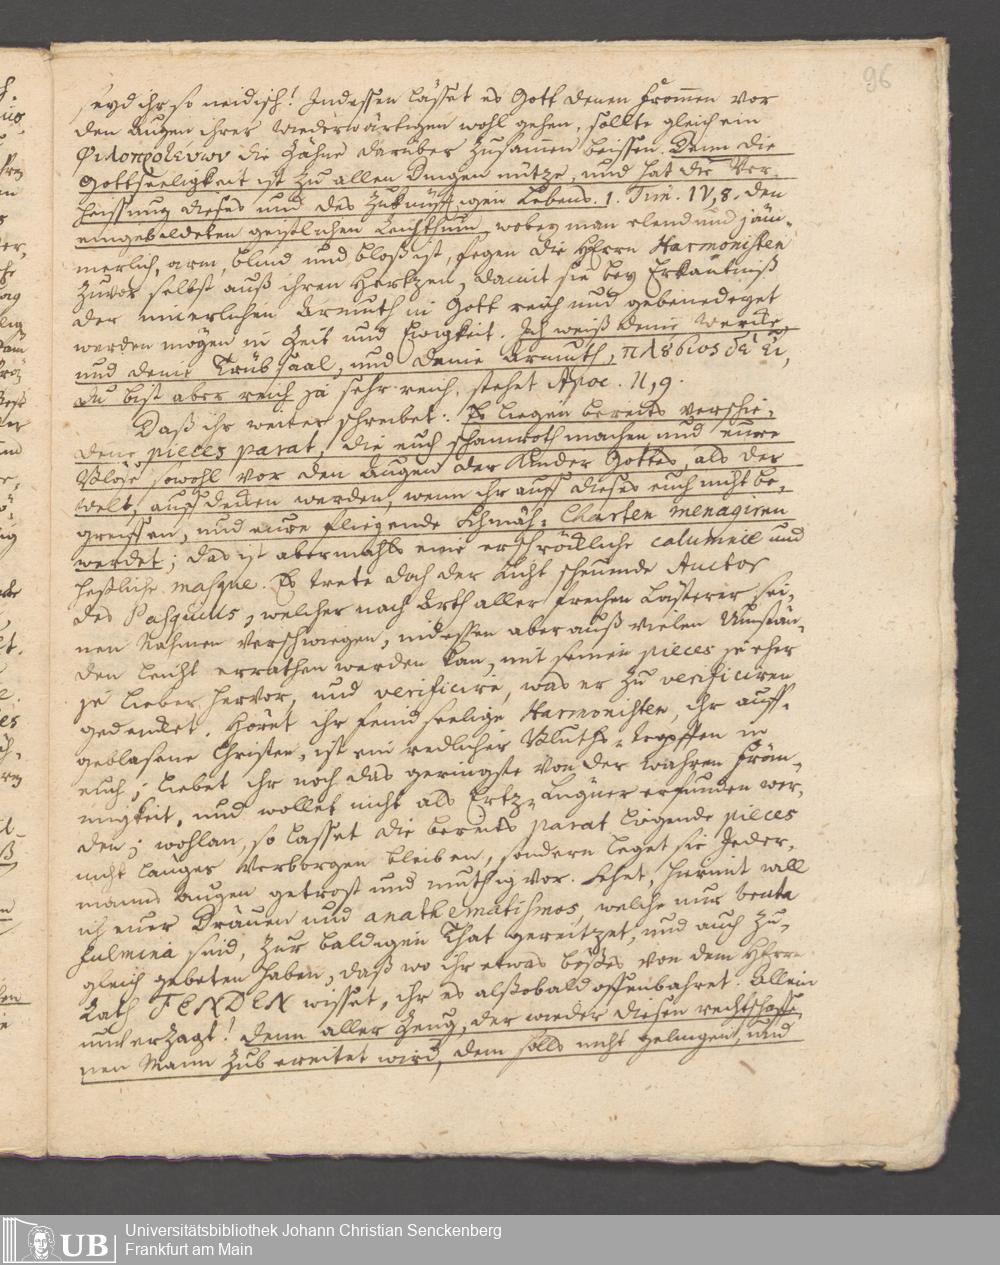 96
seyd ihr so neidisch! Indessen lässet es Gott denen frommen vor
den Augen ihrer Wiederwärtigen wohl gehen, sollte gleich ein
die Zähne darüber zusamen beissen. Denn die
Gottseeligkeit ist zu allen Dingen nütze, und hat die Ver-
heissung dieses und des Zukünfftigen Lebens. 1. Tim. IV, 8. den
eingebildeten geistlichen Reichthum, wobey man elend und jäm-
merlich, arm, blind und bloß ist, fegen die HErrn Harmonisten
zuvor selbst auß ihren Hertzen, damit sie bey Erkäntniß
der innerlichen Armuth in Gott reich und gebenedeyet
werden mögen in Zeit und Ewigkeit. Ich weiß deine Wercke,
und deine Trübsaal, und deine Armuth, πλούσιος δὲ εἶ,
du bist aber reich ja sehr reich, stehet Apoc. II, 9.
Daß ihr weiter schreibet: Es liegen bereits verschie-
dene pieces parat, die euch schamroth machen und eure
Blöse sowohl vor den Augen der Kinder Gottes, als der
Welt, aufdecken werden, wenn ihr auf dieses euch nicht be-
greiffen, und eure fliegende Schmäh-Charten menagiren
werdet; das ist abermahls eine erschröckliche calumnie und
heßliche masque. Es trete doch der Licht scheuende Auctor
des Pasquills, welcher nach Arth aller frechen Lästerer sei-
nen Nahmen verschwiegen, indessen aber auß vielen Umstän-
den leicht errathen werden kan, mit seinen pieces je eher
je lieber hervor, und verificire, was er zu verificiren
gedencket. Höret ihr feindseelige Harmonisten, ihr auff-
geblasene Christen, ist ein redlicher Bluths-tropffen in
euch; liebet ihr noch das geringste von der wahren Fröm-
migkeit, und wollet nicht als Ertz-Lügner erfunden wer-
den; wohlan, so lasset die bereits parat liegende pieces
nicht länger verborgen bleiben, sondern leget sie Jeder-
manns Augen getrost und muthig vor. Sehet, hiermit will
ich euer Dräuen und anathematismos, welche nur bruta
fulmina sind, zur baldigen That gereitzet, und auch zu-
gleich gebeten haben, daß wo ihr etwas böses von dem HErrn
Rath FENDEN wisset, ihr es alßobald offenbahret. Allein
unverzagt! denn aller Zeug, der wieder diesen rechtschaffe-
nen Mann zubereitet wird, dem solls nicht gelingen, und
UB
Universitätsbibliothek Johann Christian Senckenberg
Frankfurt am Main